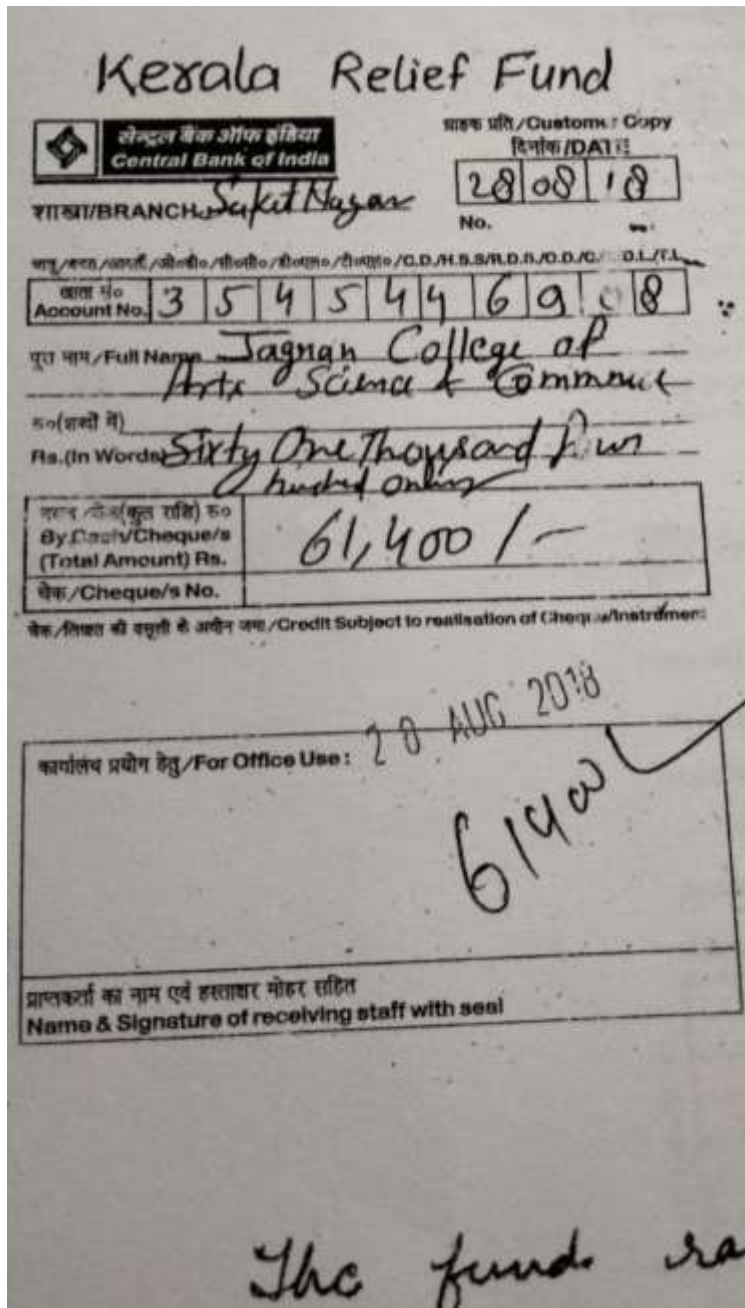 Kerala Relief Fund
सेन्ट्रल बैंक ऑफ इंडिया
Central Bank of India
ग्राहक प्रति/Customer Copy
दिनांक/DATE
28 08 18
शाखा/BRANCH Saket Nagar
No.
खाता सं०
Account No. 3 5 4 5 4 4 6 9 0 8
पूरा नाम/Full Name Jagnan College of
Arts Science & Commerce
रू०(शब्दों में)
Rs.(In Words) Sixty One Thousand
hundred only
नगद/चेक(कुल राशि) रू०
By Cash/Cheque/s
(Total Amount) Rs. 61,400/-
चेक/Cheque/s No.
चेक/लिखत की वसूली के अधीन जमा/Credit Subject to realisation of Cheque/Instrument
28 AUG 2018
कार्यालय प्रयोग हेतु/For Office Use:
61400
प्राप्तकर्ता का नाम एवं हस्ताक्षर मोहर सहित
Name & Signature of receiving staff with seal
The fund ra